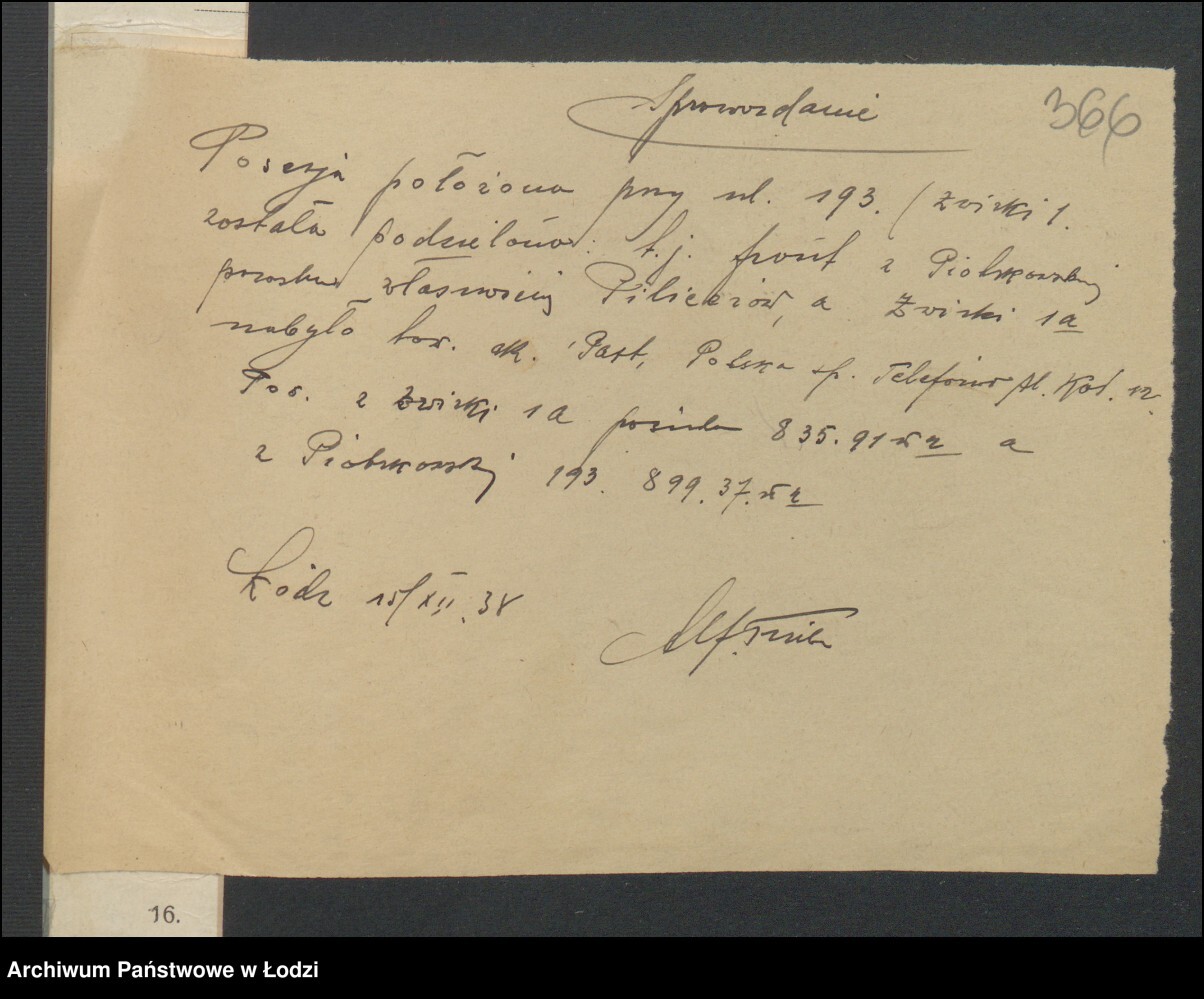 Sprawozdanie
366
Posesja położona przy ul. 193. (Żwirki 1.
została podzielona. t.j. front z Piotrkowskiej
pozostał własnością Piliczerów, a Żwirki 1a
nabyło tow. ak. Past, Polska sp. Telefoniczna Al. Kość. 12.
Pos. z Żwirki 1a posiada 835.91 m² a
z Piotrkowskiej 193. 899.37. m²
Łódź 15/XII.38
Alf.
16.
Archiwum Państwowe w Łodzi